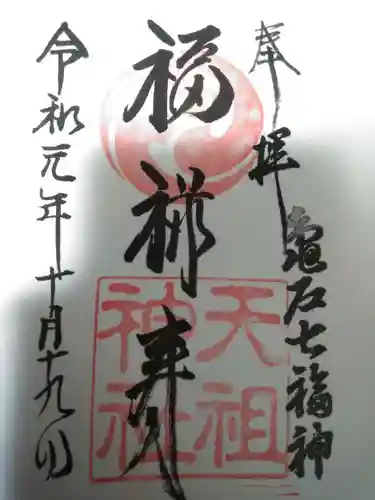 奉拝
亀戸七福神
福禄寿
天祖神社
令和元年十月十九日